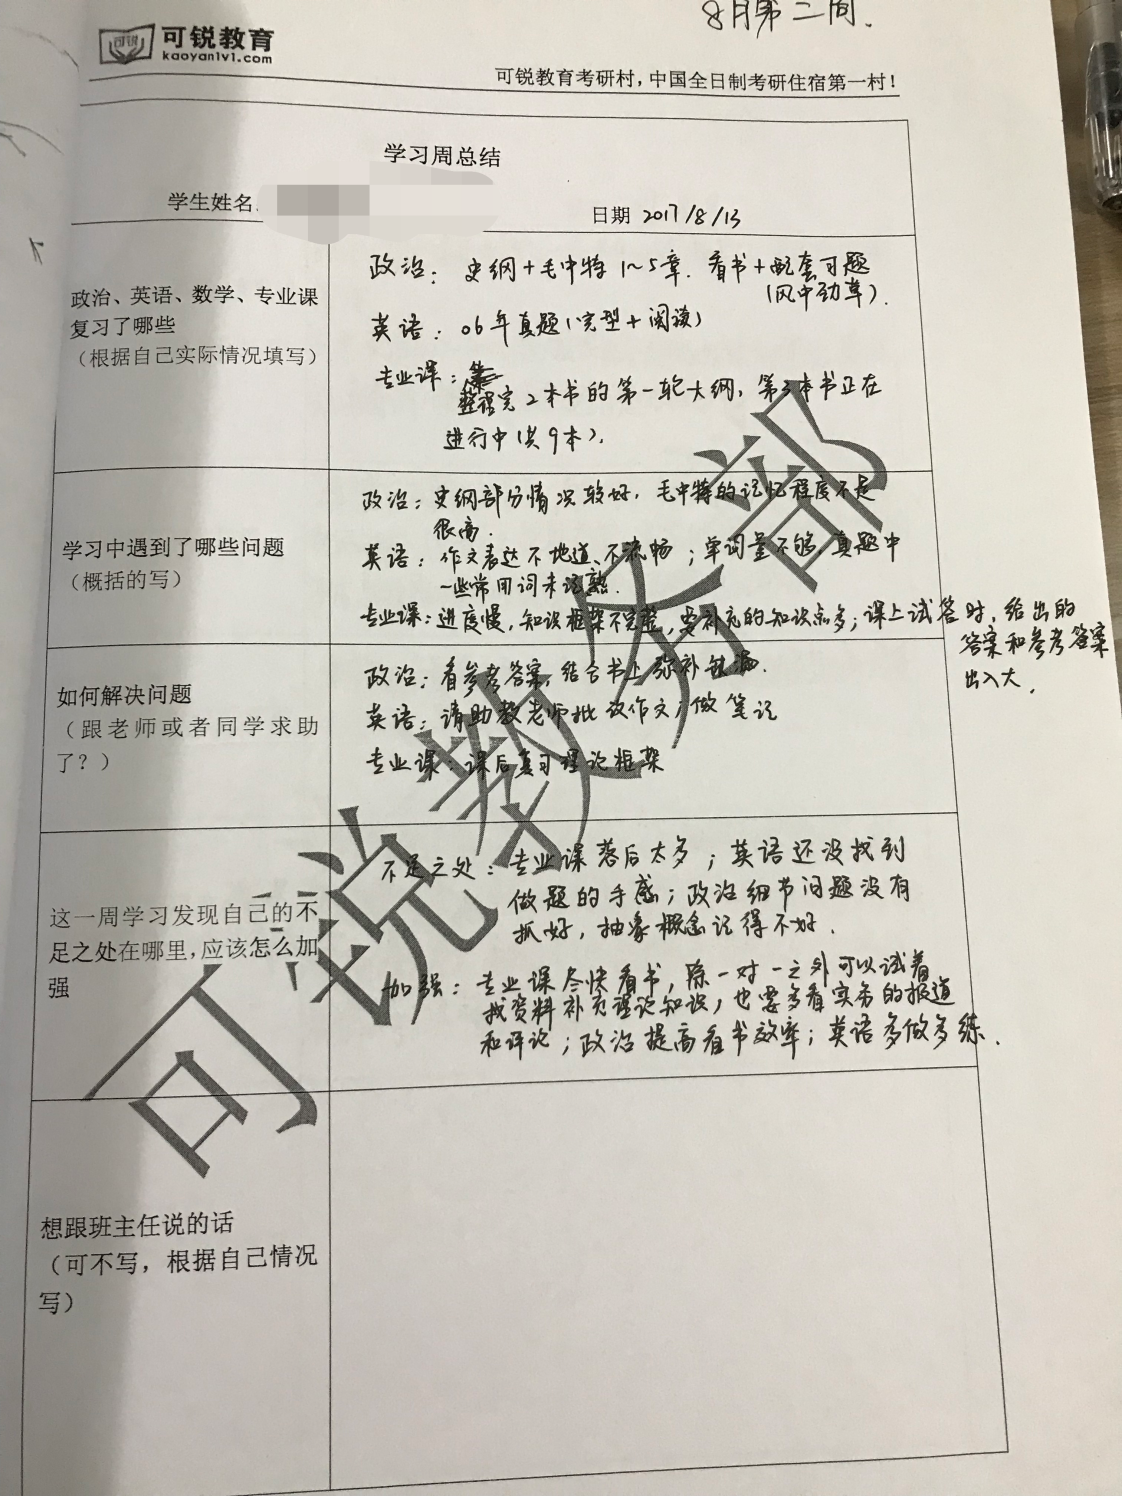 8月第二周.
可锐
可锐教育
kaoyan1v1.com
可锐教育考研村，中国全日制考研住宿第一村！
学习周总结
学生姓名
日期 2017/8/13
政治、英语、数学、专业课
复习了哪些
（根据自己实际情况填写）
政治：史纲+毛中特1~5章. 看书+配套习题
(风中劲草).
英语：06年真题(完型+阅读)
专业课：
整理完2本书的第一轮大纲，第3本书正在
进行中(共9本).
学习中遇到了哪些问题
（概括的写）
政治：史纲部分情况较好，毛中特的记忆程度不是
很高.
英语：作文表达不地道、不流畅；单词量不够 真题中
一些常用词未记熟.
专业课：进度慢，知识框架不完整，要补充的知识点多；课上试答时，给出的
答案和参考答案
出入大.
如何解决问题
（跟老师或者同学求助
了？）
政治：看参考答案，结合书上弥补缺漏.
英语：请助教老师批改作文；做笔记
专业课：课后复习理论框架
这一周学习发现自己的不
足之处在哪里，应该怎么加
强
不足之处：专业课落后太多；英语还没找到
做题的手感；政治细节问题没有
抓好，抽象概念记得不好.
加强：专业课尽快看书，除一对一之外可以试着
找资料补充理论知识，也要多看实务的报道
和评论；政治提高看书效率；英语多做多练.
想跟班主任说的话
（可不写，根据自己情况
写）
可锐教务部